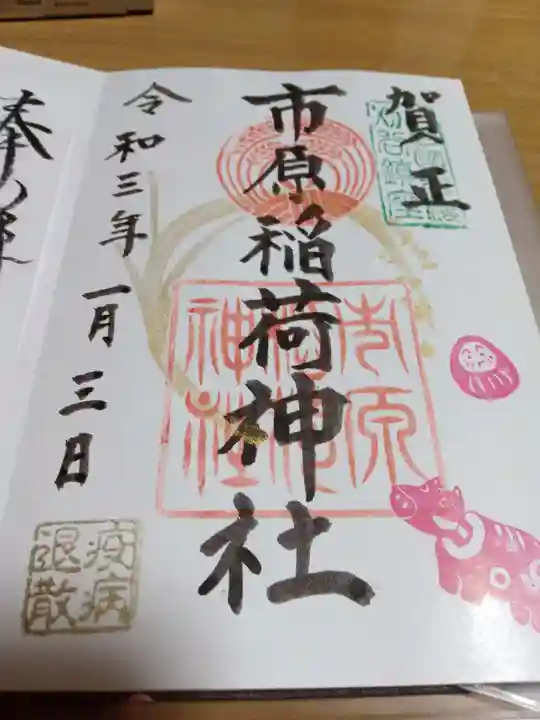 賀正
市原稲荷神社
市原稲荷神社
令和三年一月三日
疫病退散
奉